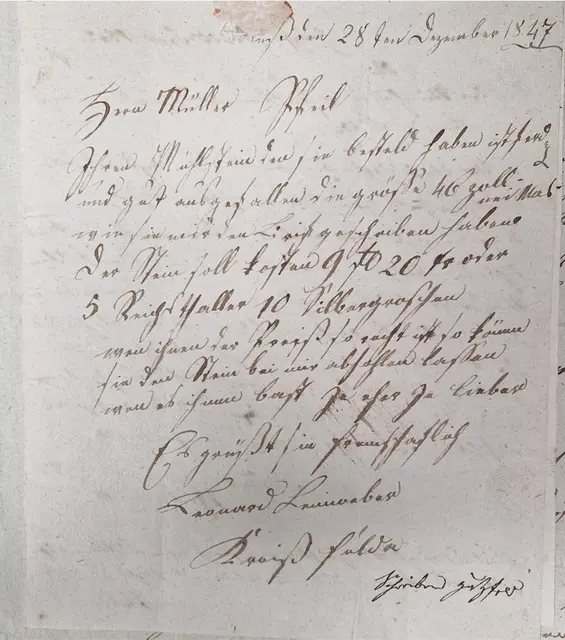 den 28 ten Dezember 1847
Herrn Müller Pfeil
Ihren Mühlstein den sie besteld haben ist ferdg
und gut ausgefallen die größe 46 zoll
neü Mas
wie sie mir den Brif geschrieben haben
Der Stein soll kosten 9 fl 20 kr oder
5 Reichsthaller 10 Silbergroschen
wen ihnen der Preiß so recht ist so könen
sie den Stein bei mir abhohlen lassen
wen es ihnen bast Je eher Je lieber
Es grüßt sie freindschaftlich
Leonard
Kreiß fulda
Schreiben